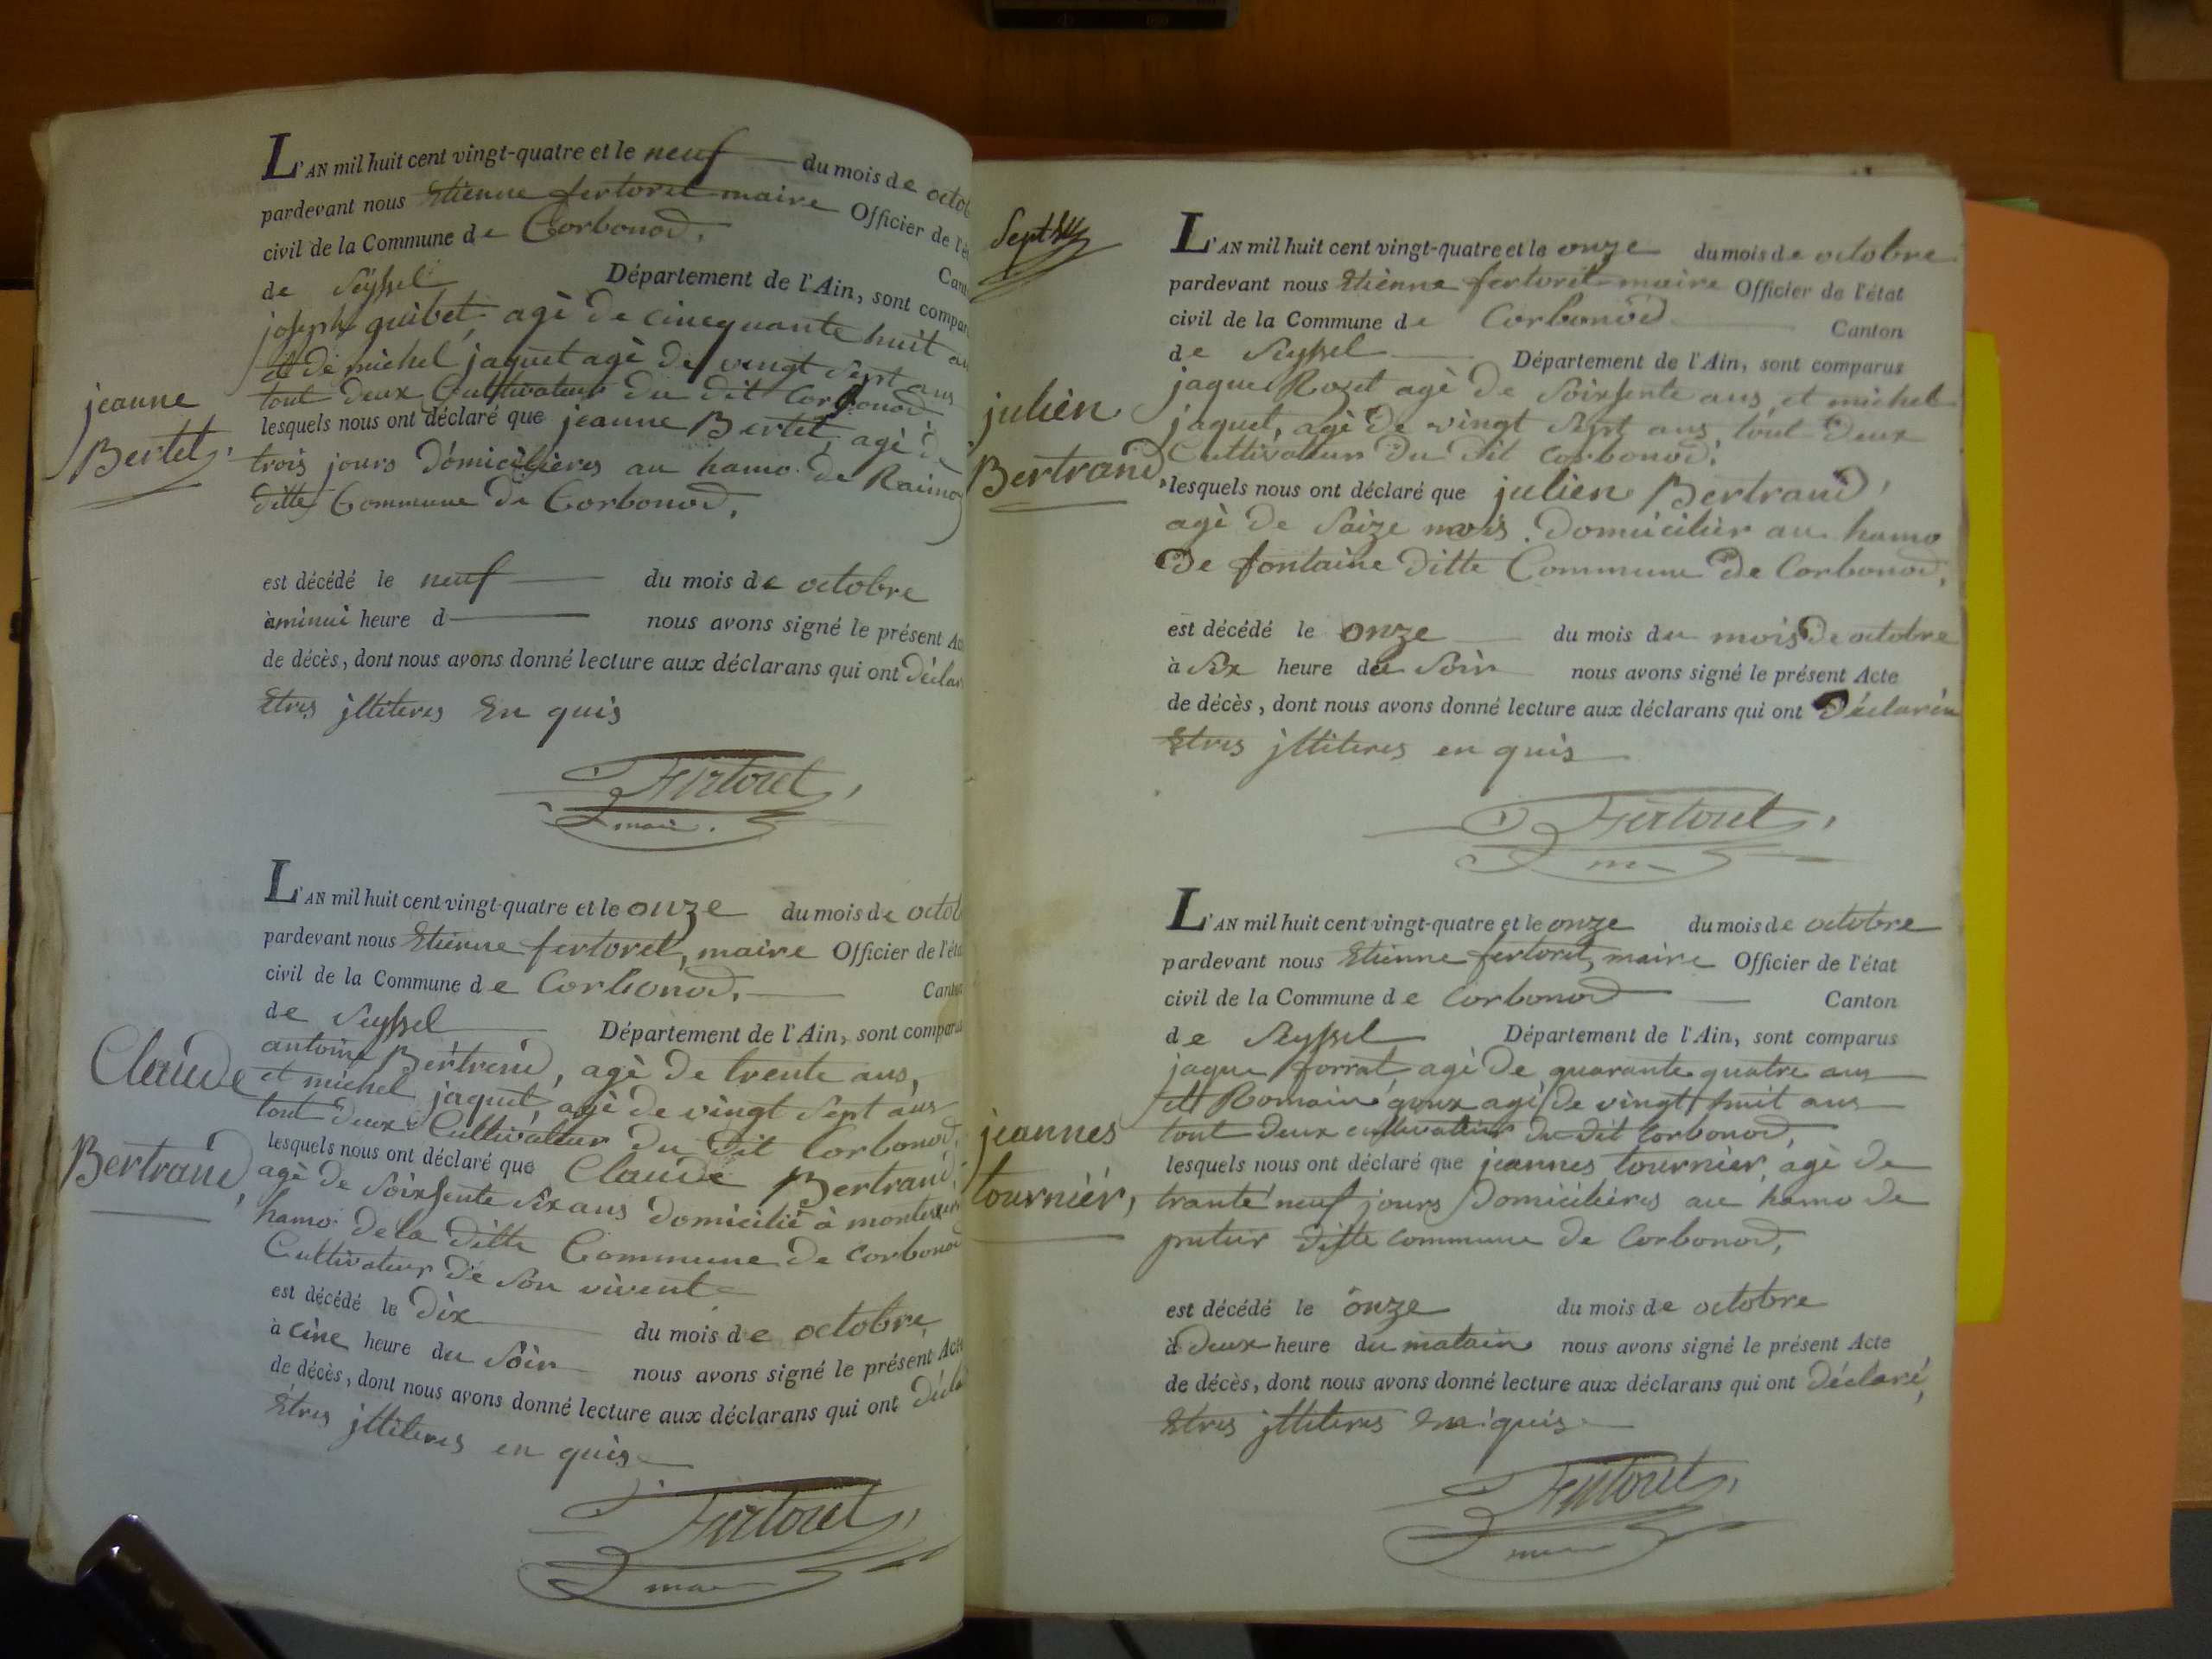 L'AN mil huit cent vingt-quatre et le neuf du mois de octob
pardevant nous Etienne fertoret maire Officier de l'ét
civil de la Commune de Corbonod, Cant
de Seyssel Département de l'Ain, sont compar
joseph guibet, agè de cincquante huit an
et de michel jaquet agè de vingt sept ans
tout deux Cultivateur du dit Corbonod
jeanne
Bertet,
lesquels nous ont déclaré que jeanne Bertet, agè de
trois jours domicilières au hamo de
ditte Commune de Corbonod,
est décédé le neuf du mois de octobre
à minui heure d nous avons signé le présent Ac
de décès, dont nous avons donné lecture aux déclarans qui ont déclar
Etres jlliteres En quis
Fertoret,
maire.
L'AN mil huit cent vingt-quatre et le onze du mois de octob
pardevant nous Etienne fertoret, maire Officier de l'éta
civil de la Commune de Corbonod, Canton
de Seyssel Département de l'Ain, sont comparu
antoine Bertrend, agè de trente ans,
et michel jaquet, agè de vingt sept ans
tout deux Cultivateur du dit Corbonod,
Claude
Bertrand,
lesquels nous ont déclaré que Claude Bertrand,
agè de soixsente six ans domicilié à
hamo de la ditte Commune de Corbonod
Cultivateur de son vivent
est décédé le dix du mois de octobre
à cinc heure du soir nous avons signé le présent Acte
de décès, dont nous avons donné lecture aux déclarans qui ont décla
Etres jlliteres en quis
Fertoret,
maire
Sept
L'AN mil huit cent vingt-quatre et le onze du mois de octobre
pardevant nous Etienne fertoret maire Officier de l'état
civil de la Commune de Corbonod Canton
de Seyssel Département de l'Ain, sont comparus
jaque Rozet agè de soixsente ans et michel
jaquet, agè de vingt sept ans, tout deux
Cultivateur du dit Corbonod,
julien
Bertrand,
lesquels nous ont déclaré que julien Bertrand,
agè de saize mois domicilier au hamo
de fontaine ditte Commune de Corbonod,
est décédé le onze du mois du mois de octobre
à six heure du soir nous avons signé le présent Acte
de décès, dont nous avons donné lecture aux déclarans qui ont
Etres jlliteres en quis
Fertoret,
m
L'AN mil huit cent vingt-quatre et le onze du mois de octobre
pardevant nous Etienne fertoret, maire Officier de l'état
civil de la Commune de Corbonod Canton
de Seyssel Département de l'Ain, sont comparus
jaque forrat, agè de quarante quatre ans
et Romain goux agè de vingt huit ans
tout deux cultivateur du dit Corbonod,
jeannes
tournièr,
lesquels nous ont déclaré que jeannes tournièr, agè de
trante neuf jours domicilières au hamo de
ditte commune de Corbonod,
est décédé le onze du mois de octobre
à deux heure du matain nous avons signé le présent Acte
de décès, dont nous avons donné lecture aux déclarans qui ont déclaré,
Etres jlliteres en quis
Fertoret,